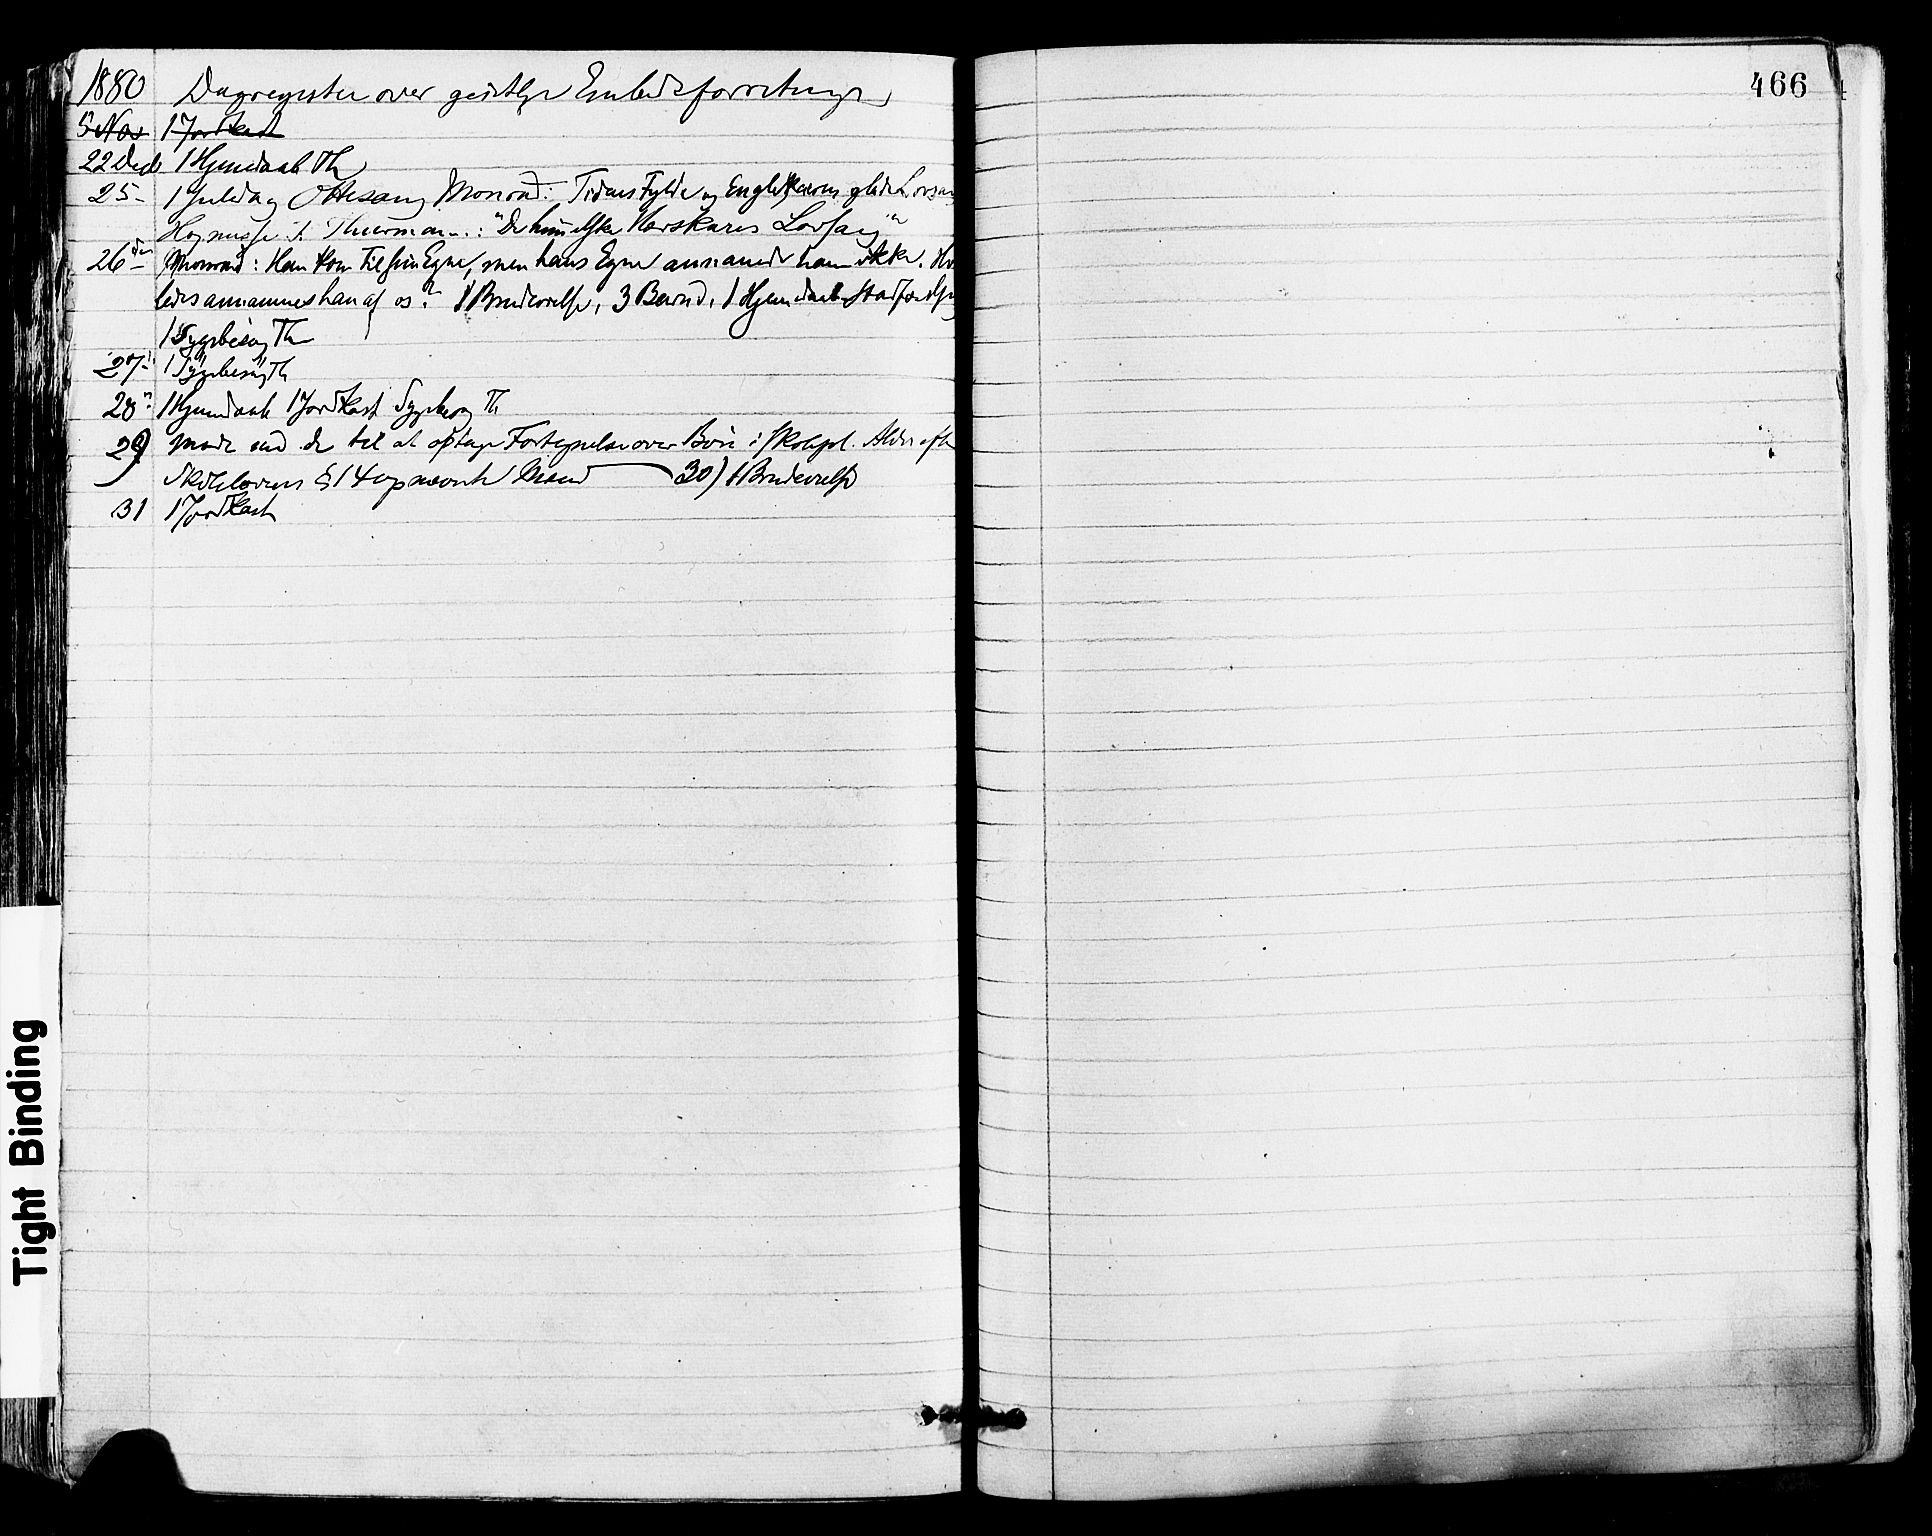 1880 Dagregister over geistlige Embedsforretninger
5 Nov 1 Jordkast
22 Decb 1 Hjemdaab Th
25 - 1 Juledag Ottesang Monrad: Tidens Fylde og Englekorens glade Lovsang
Høymesse Thurmann: "De himmelske Hærskares Lovsang"
26 den Monrad: Han kom til sin Egne, men hans Egne annamede ham ikke. Hvor
ledes annammes han af os? 1 Brudevielse, 3 Barnd. 1 Hjemdaab Stadfæstelse
1 Sygebesøg Th
27 - 1 Sygebesøg Th
28 1 Hjemdaab 1 Jordkast Sygebesøg Th
29 til at optage Fortegnelse over Børn i Skolepl. Alder efter
Skolelovens § 14 opnævnte Mænd 30) 1 Brudevielse
31 1 Jordkast
466
Tight Binding